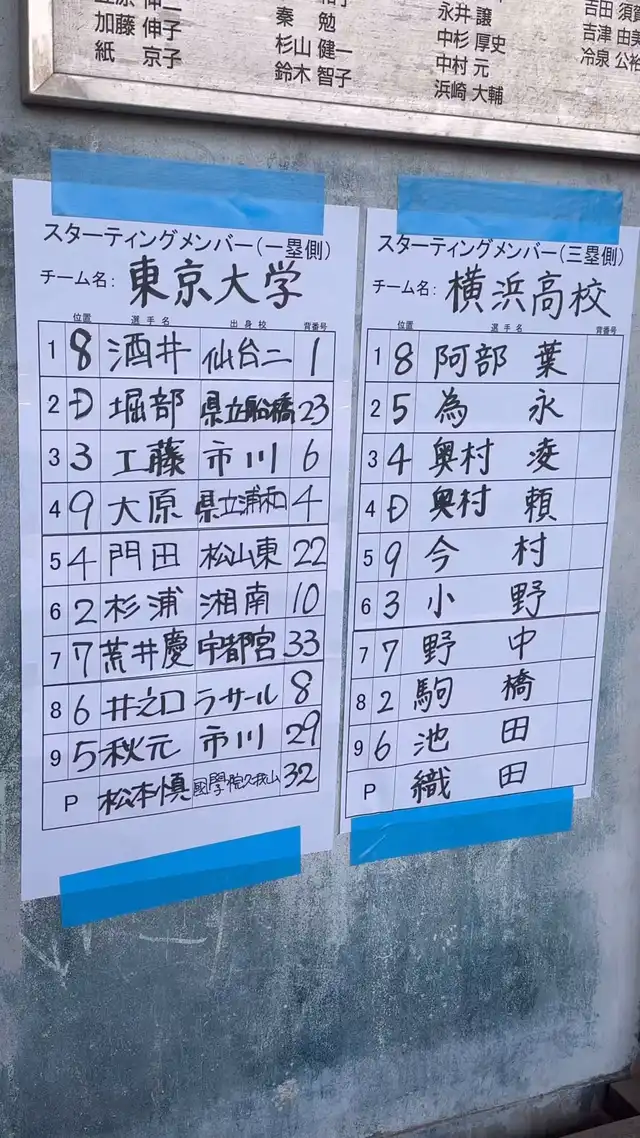 加藤 伸子
紙 京子
秦 勉
杉山 健一
鈴木 智子
永井 譲
中杉 厚史
中村 元
浜崎 大輔
吉田
吉津 由美
冷泉 公裕
スターティングメンバー(一塁側)
チーム名: 東京大学
位置 選手名 出身校 背番号
1 8 酒井 仙台二 1
2 D 堀部 県立船橋 23
3 3 工藤 市川 6
4 9 大原 県立浦和 4
5 4 門田 松山東 22
6 2 杉浦 湘南 10
7 7 荒井慶 宇都宮 33
8 6 井之口 ラサール 8
9 5 秋元 市川 29
P 松本慎 國學院久我山 32
スターティングメンバー(三塁側)
チーム名: 横浜高校
位置 選手名 背番号
1 8 阿部 葉
2 5 為永
3 4 奥村 凌
4 D 奥村 頼
5 9 今村
6 3 小野
7 7 野中
8 2 駒橋
9 6 池田
P 織田